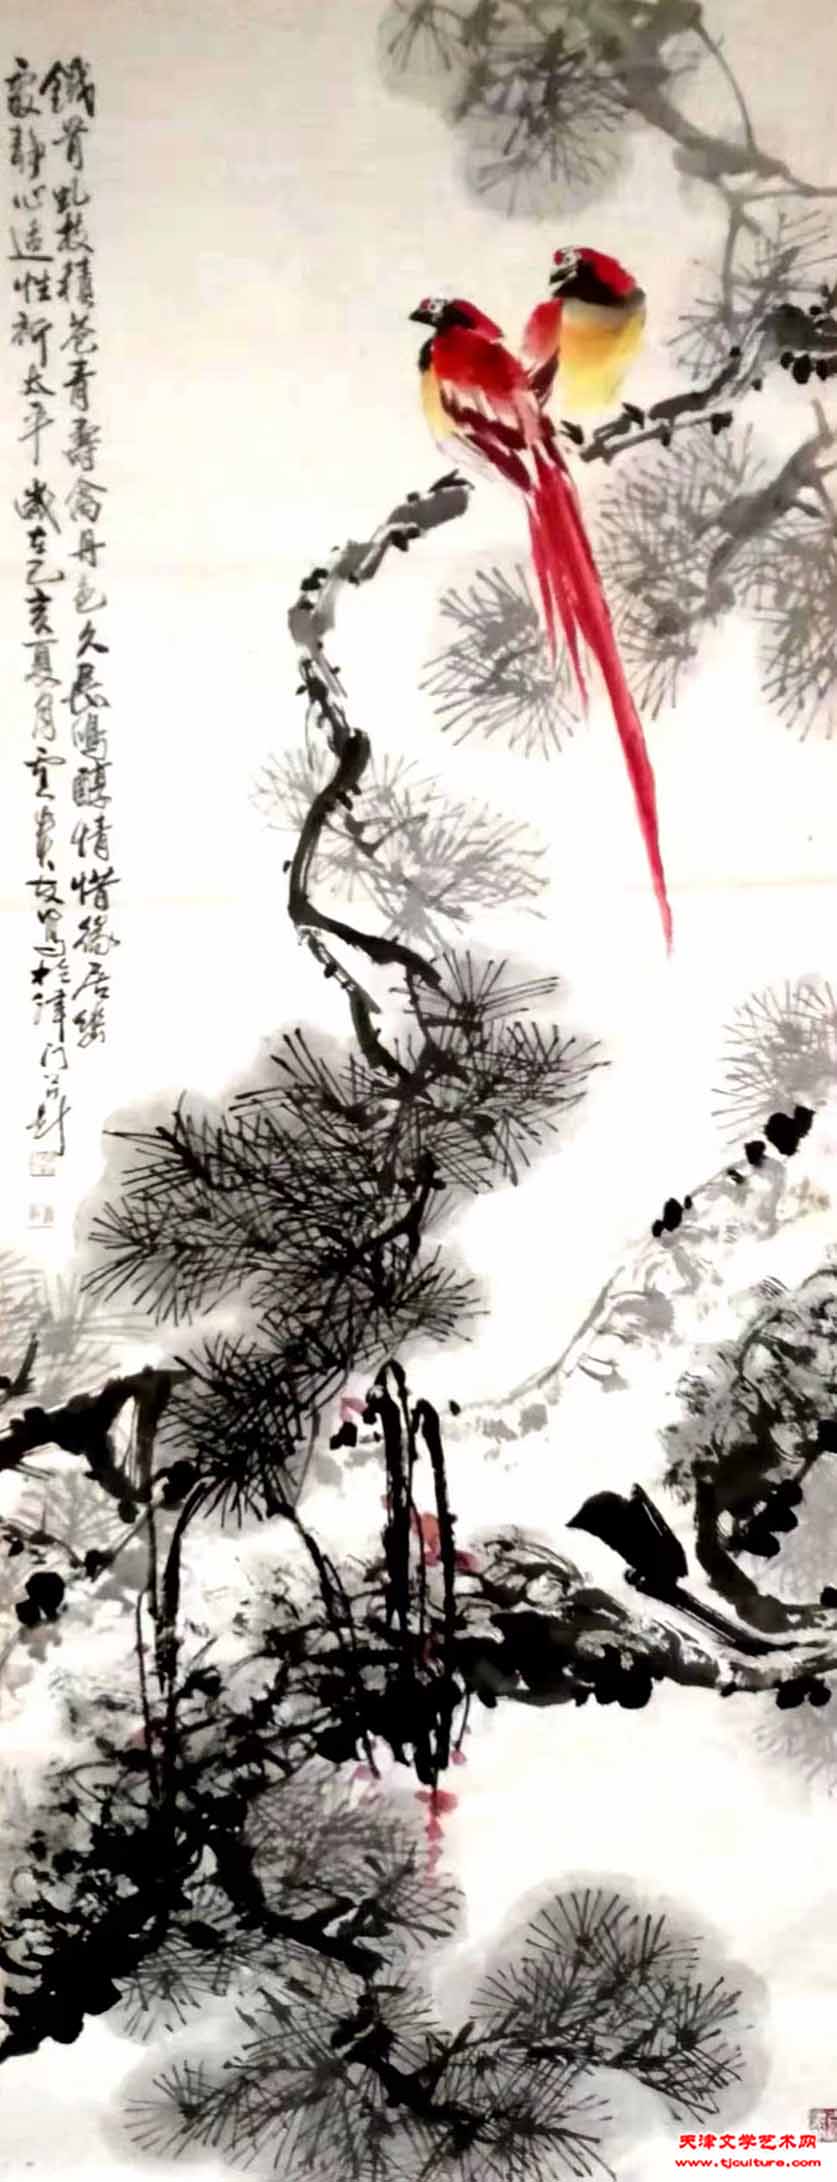 鐵骨虬枝積苍青壽禽丹色久長鳴醇情惜缘居幽
處静心适性祈太平 歲在乙亥夏月寫於津门并题
天津文学艺术网
www.tjculture.com